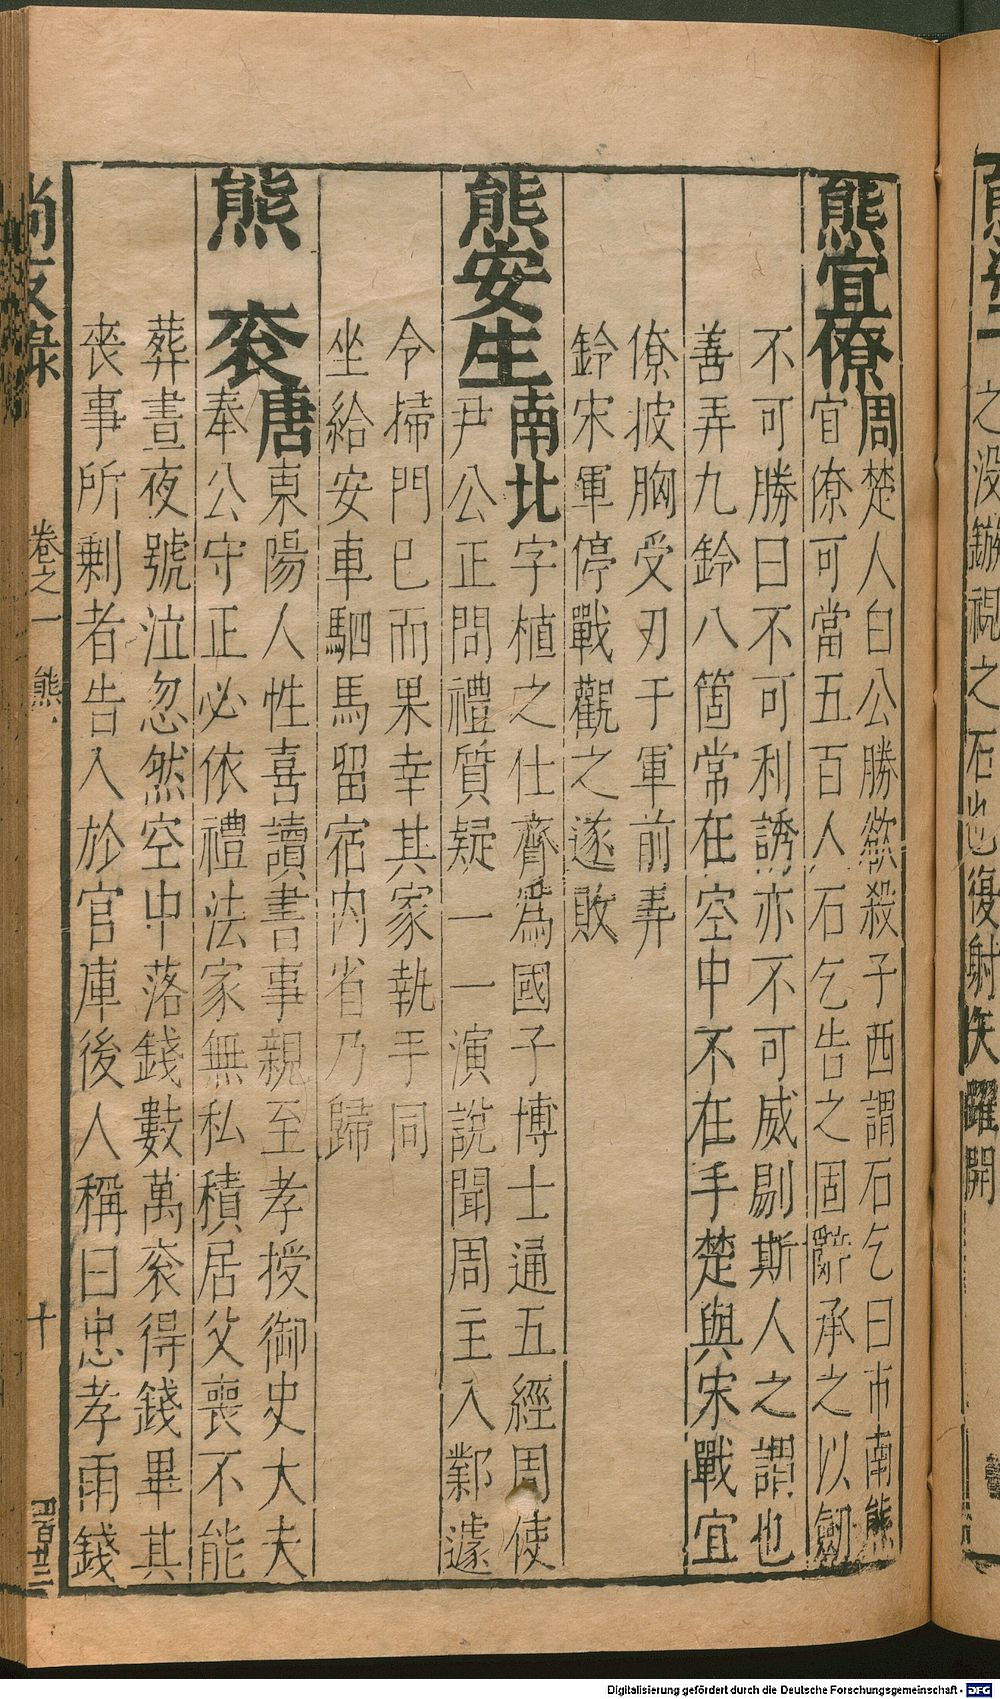 之没鏃視之石也復射矢躍開
熊宜僚周楚人白公勝慾殺子西謂石乞曰市南熊
宜僚可當五百人石乞告之固辭承之以劒
不可勝曰不可利誘亦不可威剔斯人之謂也
善弄九鈴八箇常在空中不在手楚與宋戰宜
僚披胸受刃于軍前弄
鈴宋軍停戰觀之遂敗
熊安生南北字植之仕齊爲國子博士通五經周使
尹公正問禮質疑一一演說聞周主入鄴遽
令掃門已而果幸其家執手同
坐給安車駟馬留宿内省乃歸
熊袞唐東陽人性喜讀書事親至孝授御史大夫
奉公守正必依禮法家無私積居父喪不能
葬晝夜號泣忽然空中落錢數萬袞得錢畢其
喪事所剩者告入於官庫後人稱曰忠孝雨錢
尚友錄 卷之一 熊 十
Digitalisierung gefördert durch die Deutsche Forschungsgemeinschaft - DFG